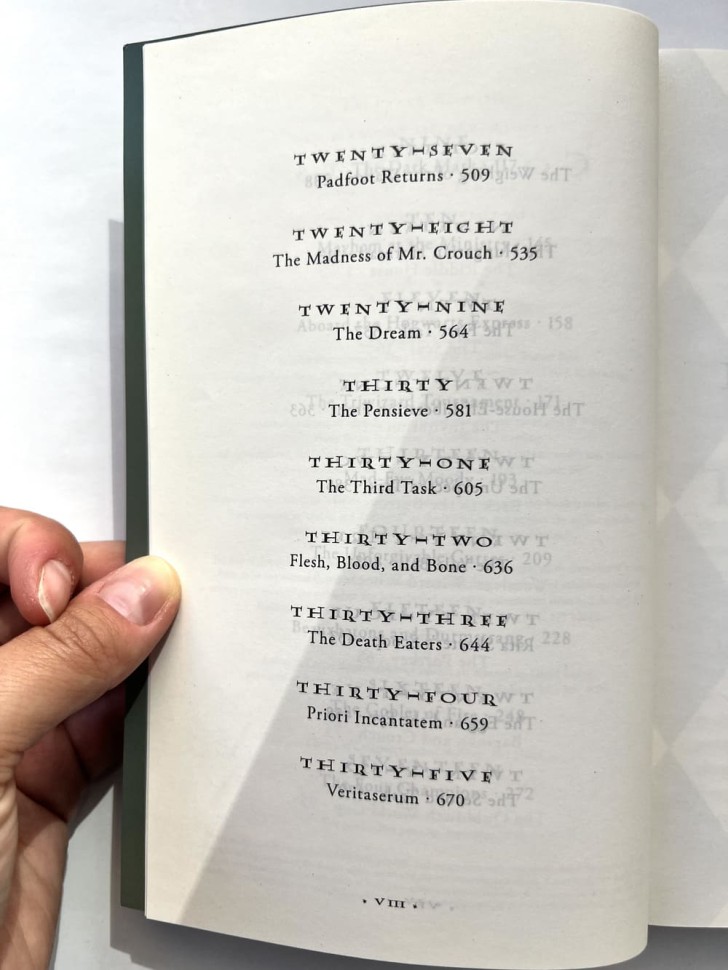 TWENTY-SEVEN
Padfoot Returns · 509
TWENTY-EIGHT
The Madness of Mr. Crouch · 535
TWENTY-NINE
The Dream · 564
THIRTY
The Pensieve · 581
THIRTY-ONE
The Third Task · 605
THIRTY-TWO
Flesh, Blood, and Bone · 636
THIRTY-THREE
The Death Eaters · 644
THIRTY-FOUR
Priori Incantatem · 659
THIRTY-FIVE
Veritaserum · 670
· VIII ·